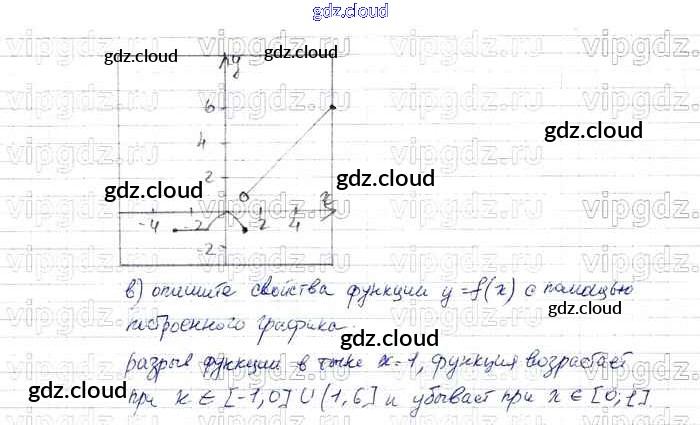 gdz.cloud
vipgdz.ru vipgdz.ru vipgdz.ru vipgdz.ru
gdz.cloud gdz.cloud gdz.cloud
y
6
4
gdz.cloud
2
gdz.cloud gdz.cloud
x
-4 -2 2 4
-2
в) опишите свойства функции y=f(x) с помощью
построенного графика.
gdz.cloud
разрыв функции в точке x=1, функция возрастает
gdz.cloud gdz.cloud
при x ∈ [-1,0] U (1,6] и убывает при x ∈ [0,1].